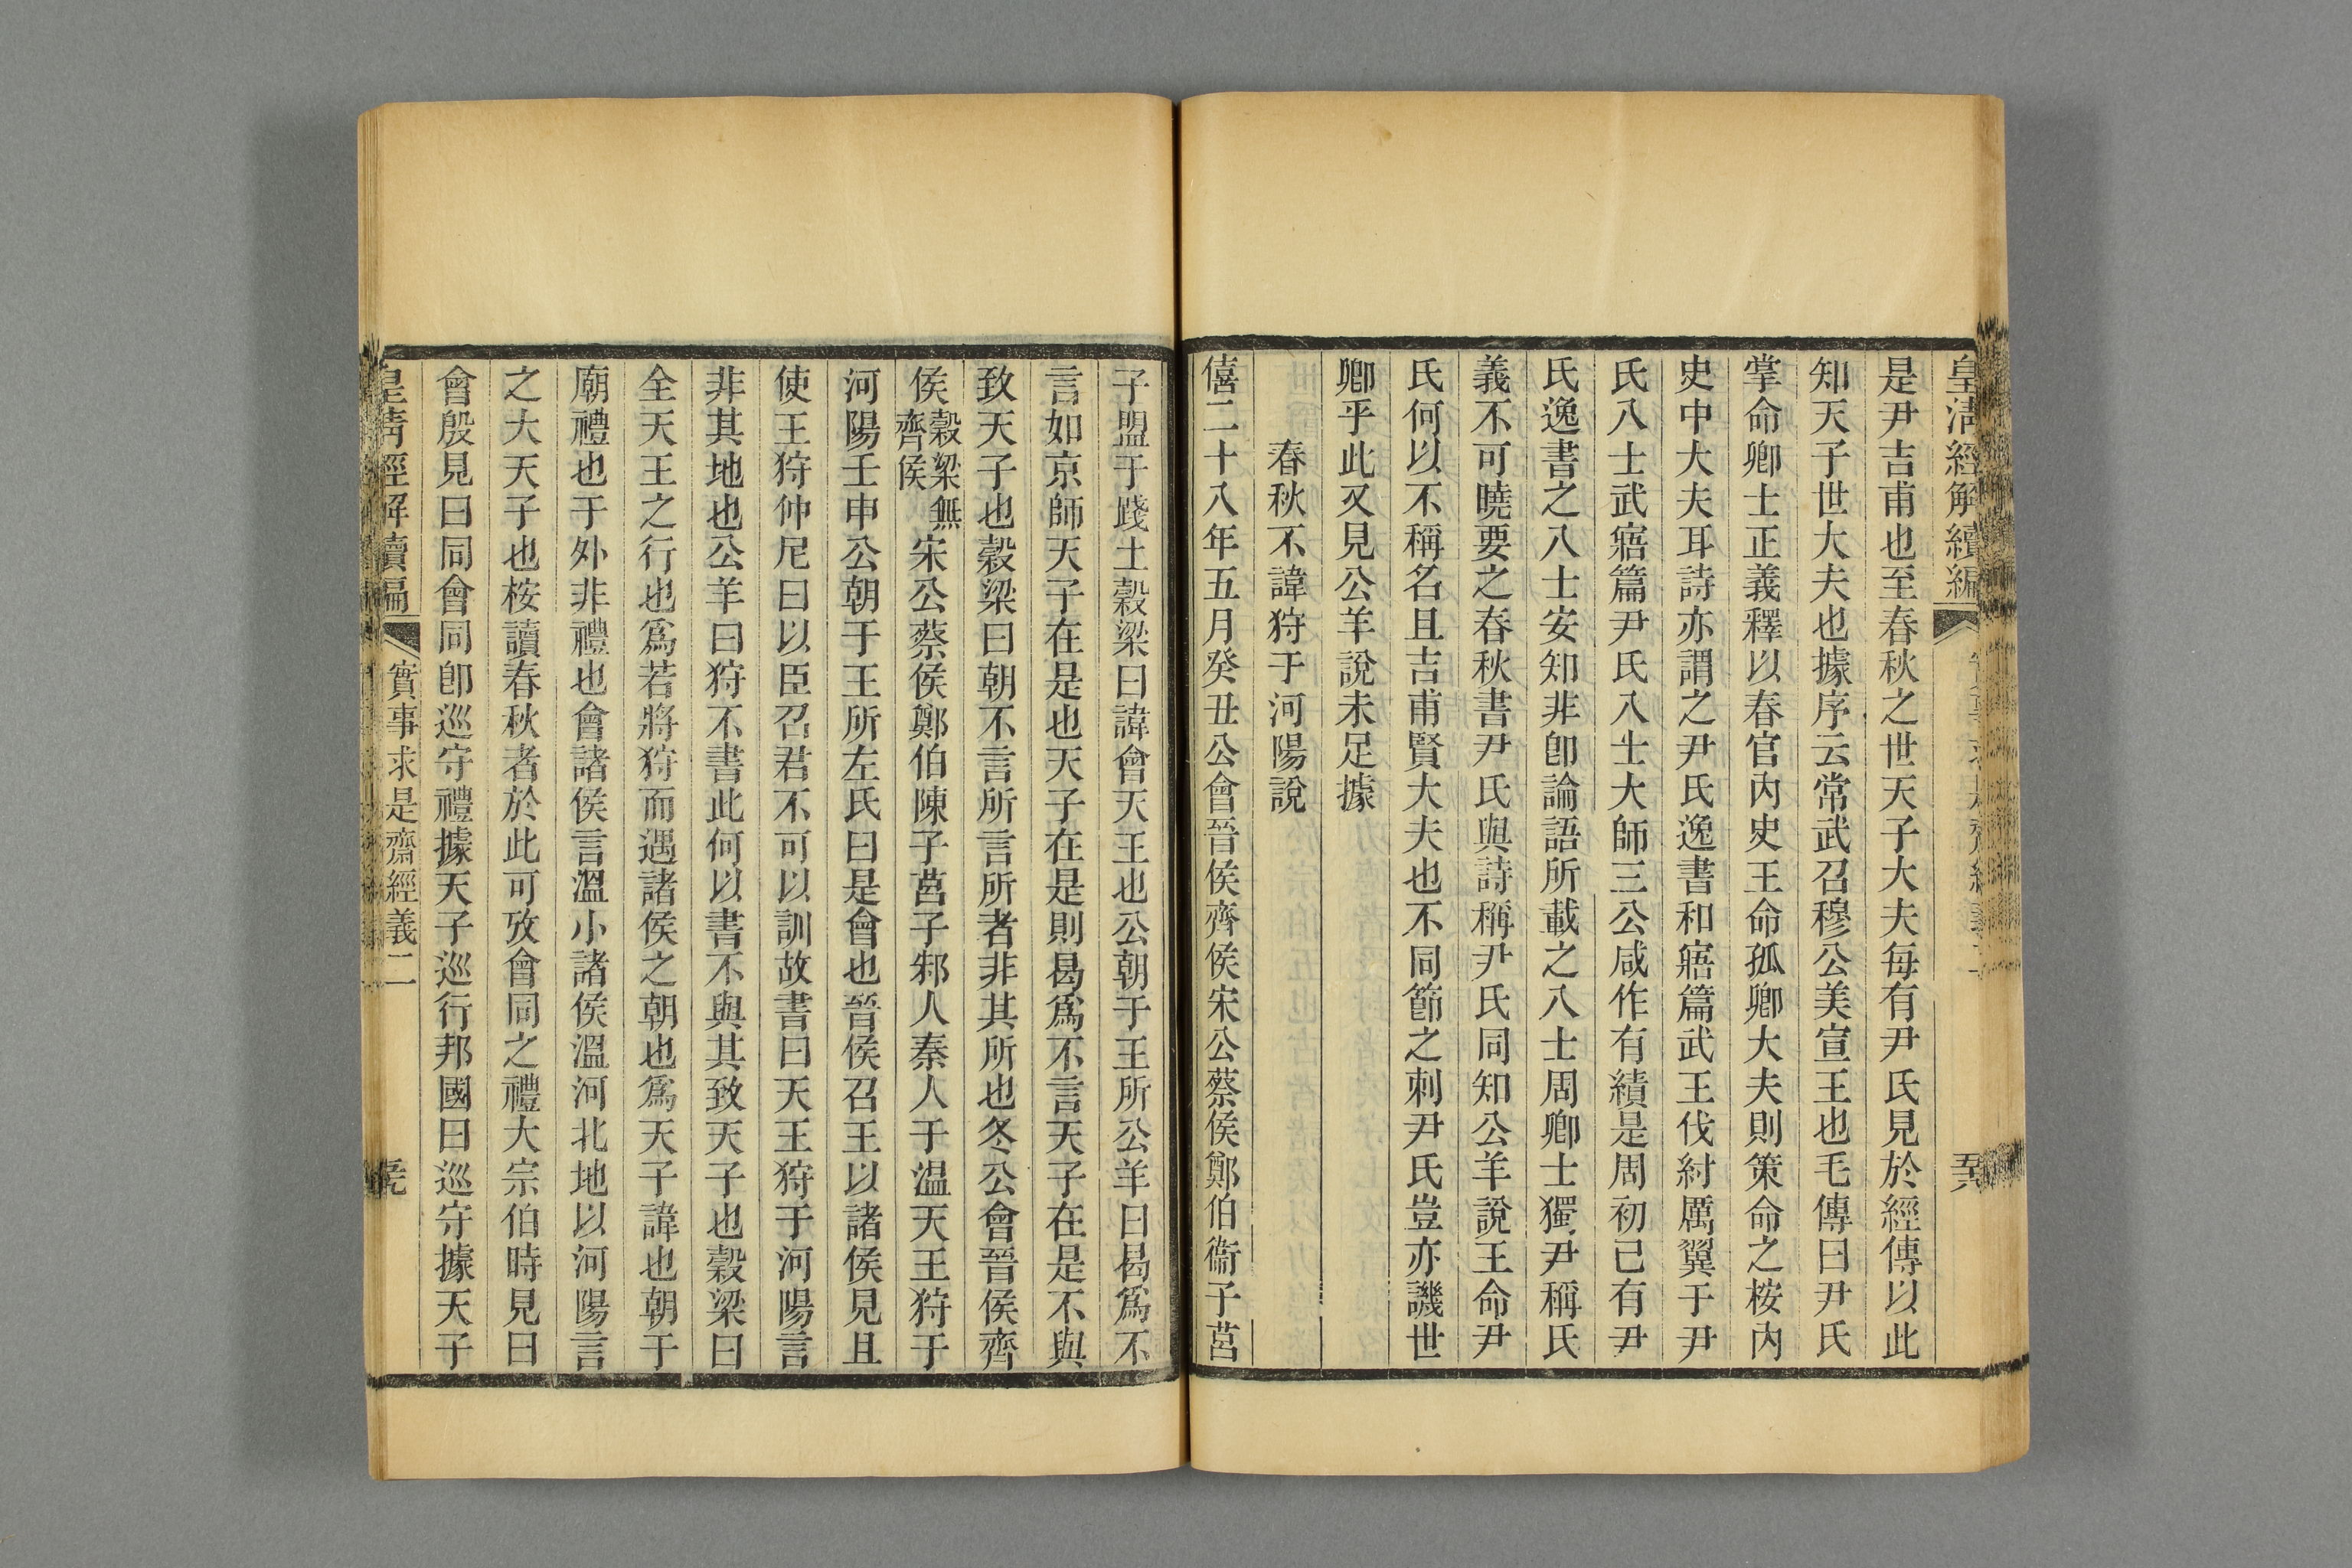 皇清經解續編
是尹吉甫也至春秋之世天子大夫每有尹氏見於經傳以此
知天子世大夫也據序云常武召穆公美宣王也毛傳曰尹氏
掌命卿士正義釋以春官內史王命孤卿大夫則策命之桉內
史中大夫耳詩亦謂之尹氏逸書和寤篇武王伐紂厲翼于尹
氏八士武寤篇尹氏八士大師三公咸作有績是周初已有尹
氏逸書之八士安知非卽論語所載之八士周卿士獨尹稱氏
義不可曉要之春秋書尹氏與詩稱尹氏同知公羊說王命尹
氏何以不稱名且吉甫賢大夫也不同節之刺尹氏豈亦譏世
卿乎此又見公羊說未足據
春秋不諱狩于河陽說
僖二十八年五月癸丑公會晉侯齊侯宋公蔡侯鄭伯衞子莒
子盟于踐土穀梁曰諱會天王也公朝于王所公羊曰曷爲不
言如京師天子在是也天子在是則曷爲不言天子在是不與
致天子也穀梁曰朝不言所言所者非其所也冬公會晉侯齊
侯穀梁無齊侯宋公蔡侯鄭伯陳子莒子邾人秦人于溫天王狩于
河陽壬申公朝于王所左氏曰是會也晉侯召王以諸侯見且
使王狩仲尼曰以臣召君不可以訓故書曰天王狩于河陽言
非其地也公羊曰狩不書此何以書不與其致天子也穀梁曰
全天王之行也爲若將狩而遇諸侯之朝也爲天子諱也朝于
廟禮也于外非禮也會諸侯言溫小諸侯溫河北地以河陽言
之大天子也桉讀春秋者於此可攷會同之禮大宗伯時見曰
會殷見曰同會同卽巡守禮據天子巡行邦國曰巡守據天子
皇清經解續編 實事求是齋經義二